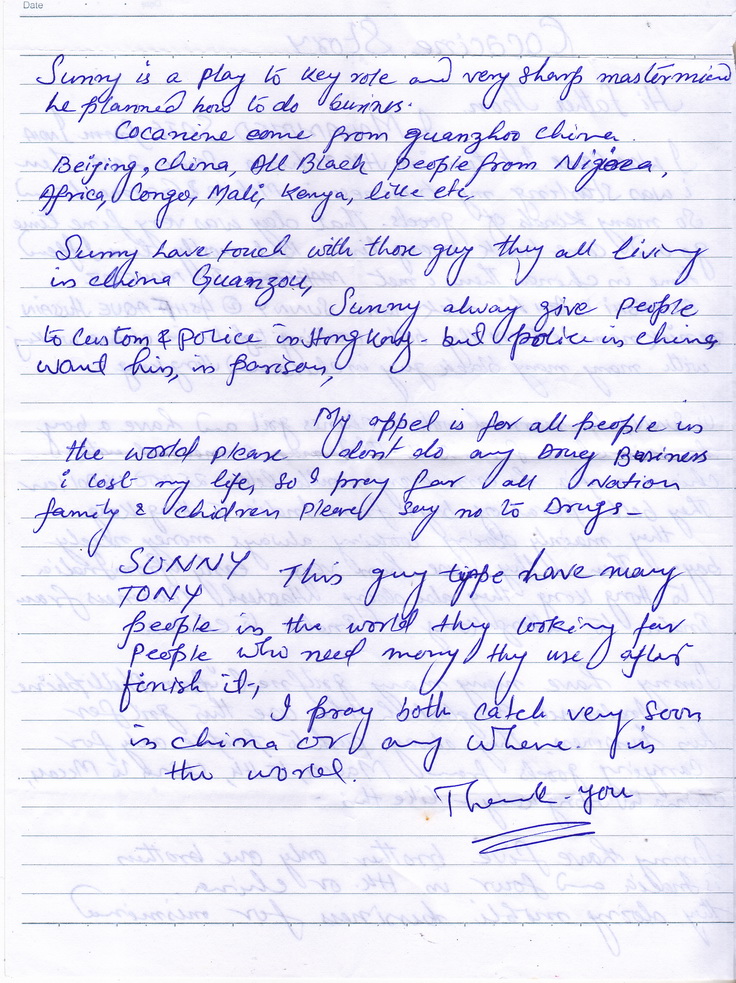 Date
Sunny is a play to key role and very sharp mastermind
he planned how to do busines.
Cocanine come from guanzhoo china.
Beijing, china, All Black people from Nigeea,
Africa, Congo, Mali, Kenya, like etc,
Sunny have touch with those guy they all living
in china Guanzou,
Sunny alway give people
to Custom & police in Hong Kong - but police in china,
want him, in parison,
My appel is for all people in
the world please dont do any Drug Business
i lost my life, so I pray for all Nation
family & chidren please say no to Drugs-
SUNNY This guy type have many
TONY
people in the world they looking for
people who need money they use after
finish it,
I pray both catch very soon
in china or any where. in
the world.
Thank-you